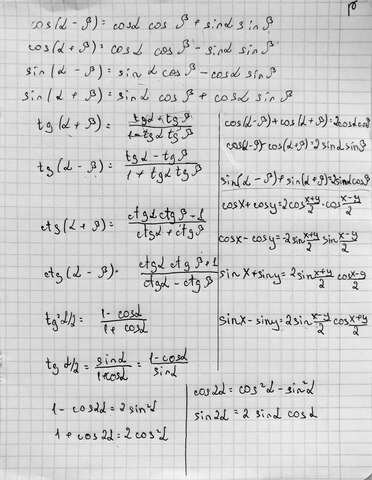 cos(α - β) = cosα cos β + sinα sin β
cos(α + β) = cosα cosβ - sinα sinβ
sin(α - β) = sinα cosβ - cosα sinβ
sin(α + β) = sinα cosβ + cosα sinβ
tg(α + β) = (tgα + tgβ)/(1 - tgα tgβ)
tg(α - β) = (tgα - tgβ)/(1 + tgα tgβ)
ctg(α + β) = (ctgα ctgβ - 1)/(ctgα + ctgβ)
ctg(α - β) = (ctgα ctgβ + 1)/(ctgα - ctgβ)
tg²α/2 = (1 - cosα)/(1 + cosα)
tg α/2 = sinα/(1 + cosα) = (1 - cosα)/sinα
1 - cos2α = 2 sin²α
1 + cos2α = 2 cos²α
cos(α-β) + cos(α+β) = 2cosα cosβ
cos(α-β) - cos(α+β) = 2 sinα sinβ
sin(α-β) + sin(α+β) = 2sinα cosβ
cosx + cosy = 2cos (x+y)/2 · cos (x-y)/2
cosx - cosy = -2sin (x+y)/2 sin (x-y)/2
sin x + siny = 2sin (x+y)/2 cos (x-y)/2
sinx - siny = 2sin (x-y)/2 cos (x+y)/2
cos2α = cos²α - sin²α
sin2α = 2 sinα cosα